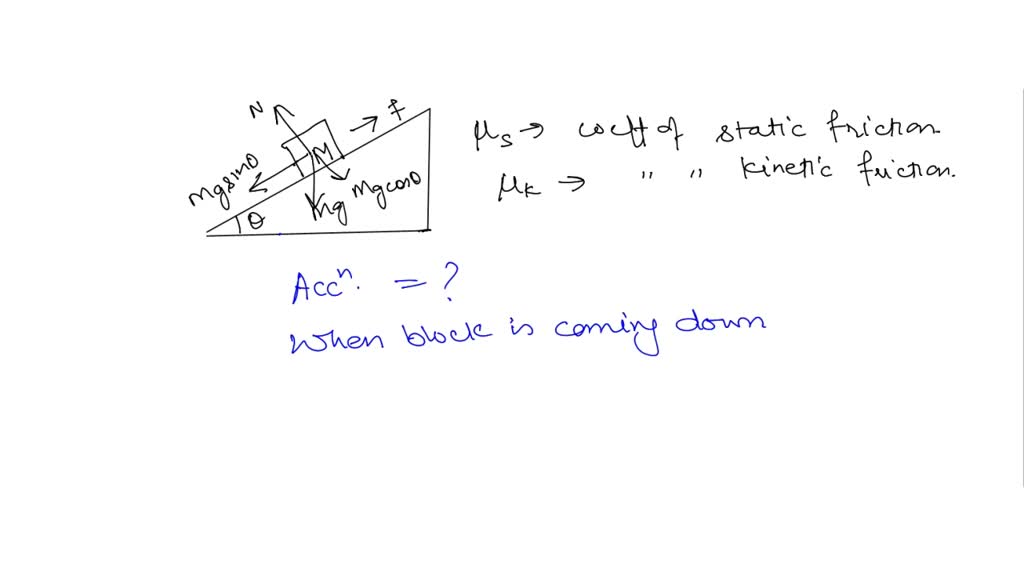 N
f
M
Mg sinθ
Mg cosθ
Mg
θ
μs → coeff of static friction
μk → " " kinetic friction.
Accⁿ. = ?
when block is coming down